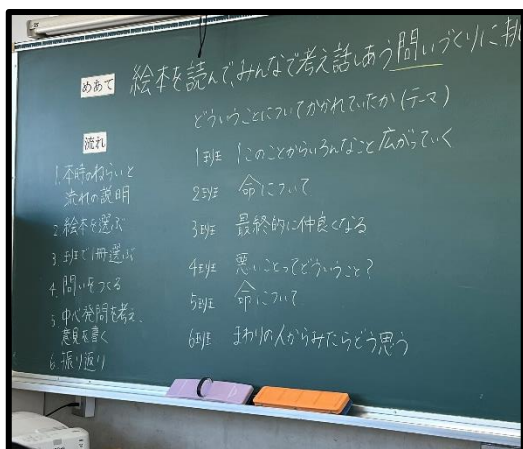 めあて 絵本を読んで、みんなで考え話しあう問いづくりに挑
どういうことについてかかれていたか(テーマ)
流れ
1.本時のねらいと
流れの説明
2.絵本を選ぶ
3.班で1冊選ぶ
4.問いをつくる
5.中心発問を考え、
意見を書く
6.振り返り
1班 1このことからいろんなこと広がっていく
2班 命について
3班 最終的に仲良くなる
4班 悪いことってどういうこと?
5班 命について
6班 まわりの人からみたらどう思う